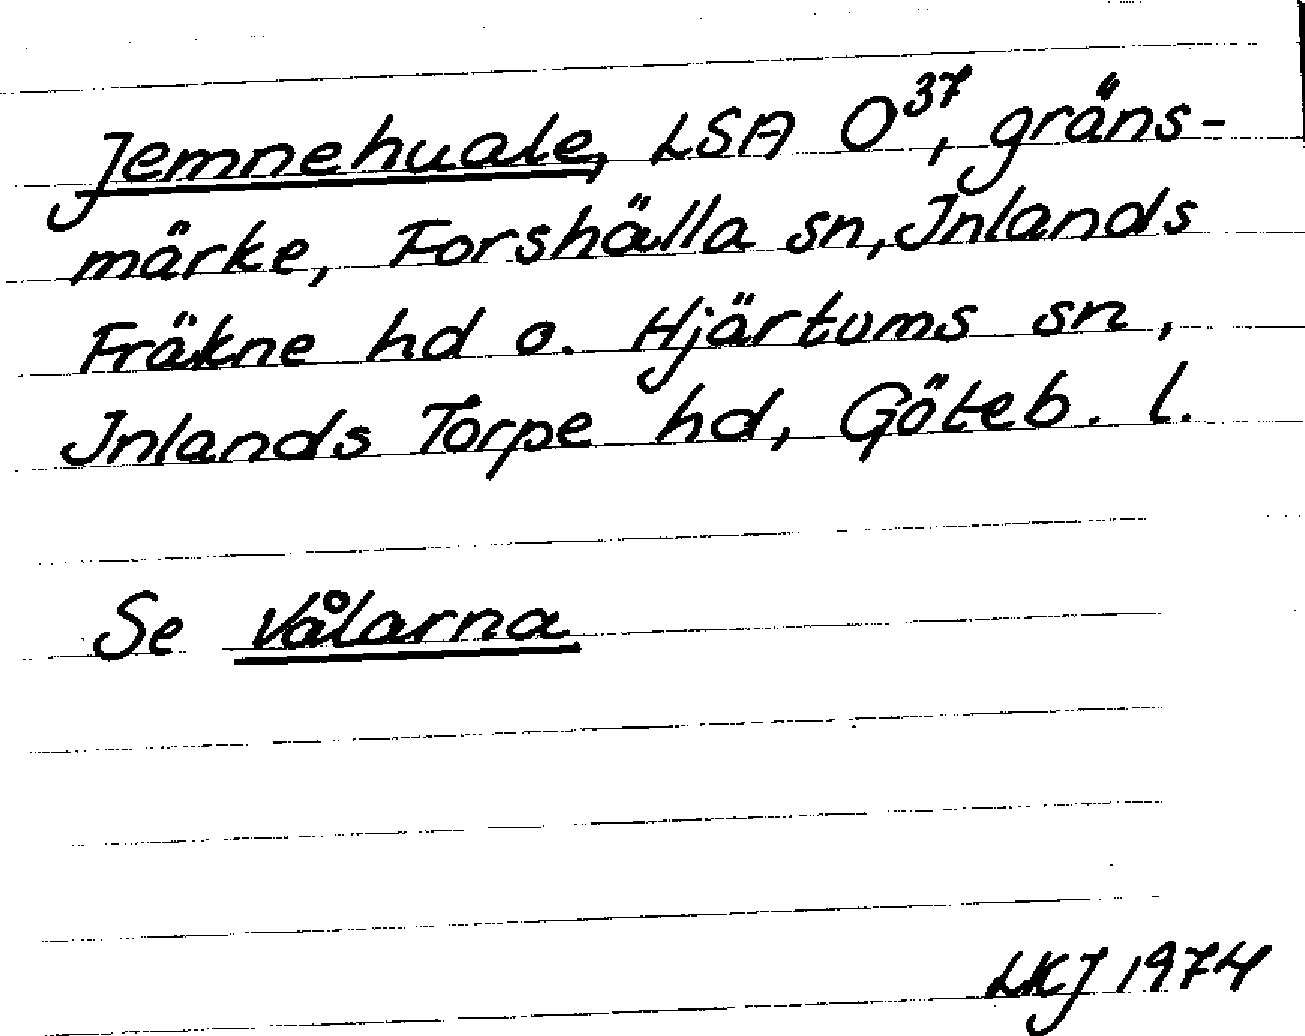 Jemnehuale, LSA O³⁷, gräns-
märke, Forshälla sn, Inlands
Fräkne hd o. Hjärtums sn,
Inlands Torpe hd, Göteb. l.
Se Vålarna
LKJ 1974